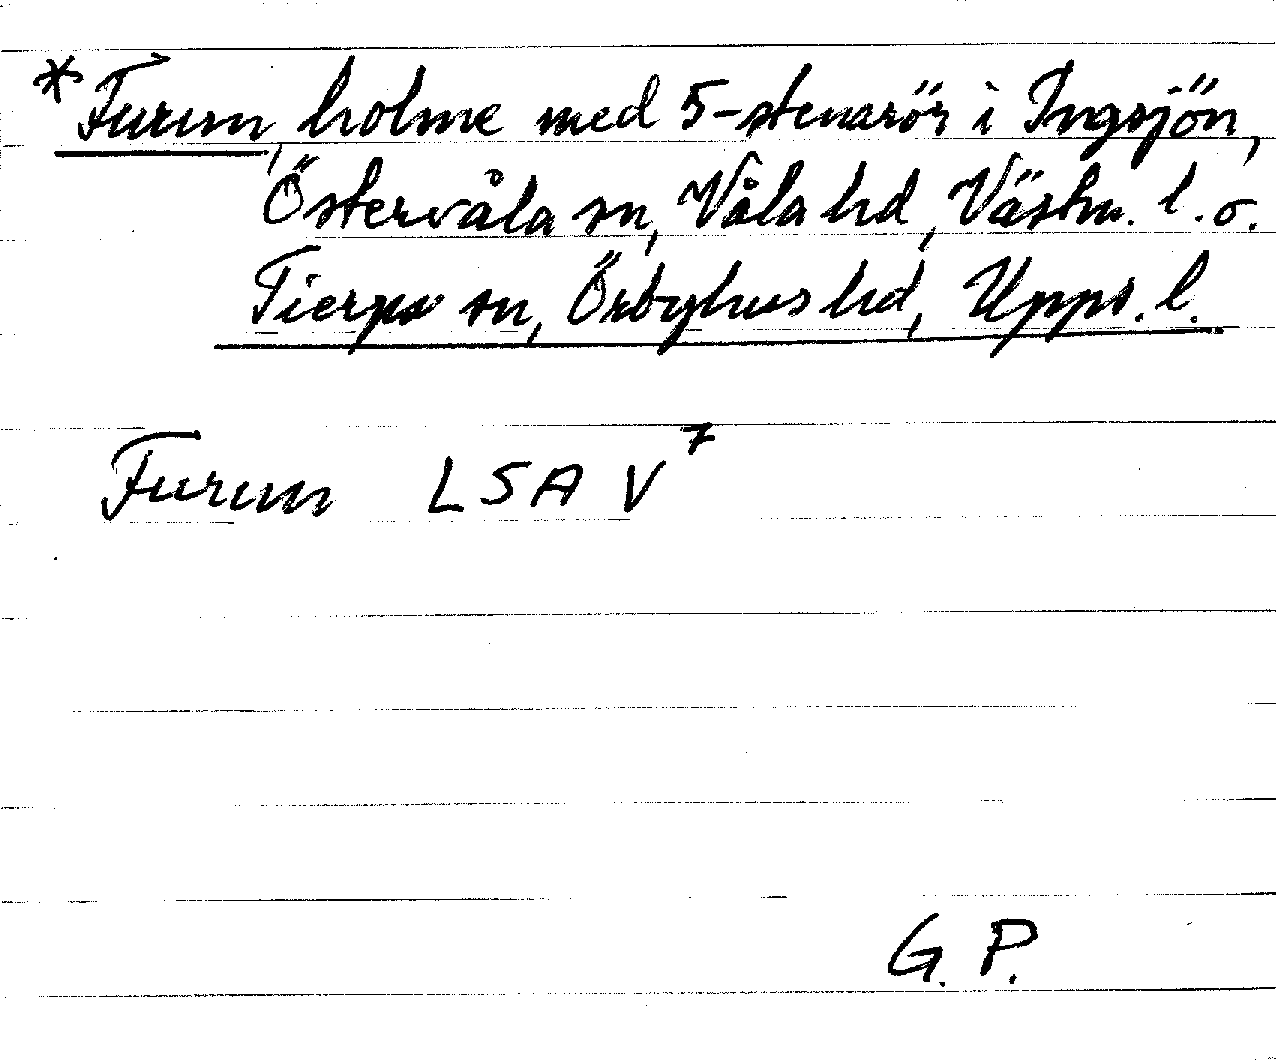 *Furun, holme med 5-stenarör i Ingsjön,
Östervåla sn, Våla hd, Västm. l. o.
Tierps sn, Örbyhus hd, Upps. l.
Furun LSA V⁷
G. P.